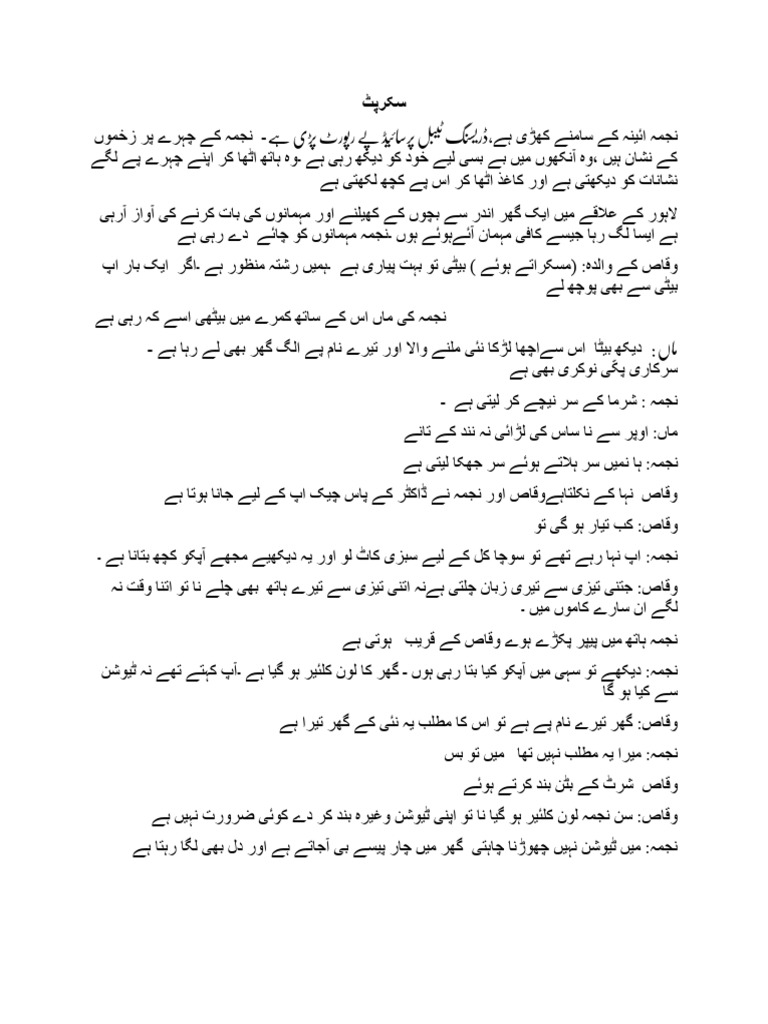 سکرپٹ
نجمہ ائینہ کے سامنے کھڑی ہے،ڈریسنگ ٹیبل پرسائیڈ پے رپورٹ پڑی ہے۔ نجمہ کے چہرے پر زخموں
کے نشان ہیں ،وہ آنکھوں میں بے بسی لیے خود کو دیکھ رہی ہے ۔وہ ہاتھ اٹھا کر اپنے چہرے پے لگے
نشانات کو دیکھتی ہے اور کاغذ اٹھا کر اس پے کچھ لکھتی ہے
لاہور کے علاقے میں ایک گھر اندر سے بچوں کے کھیلنے اور مہمانوں کی بات کرنے کی آواز آرہی
ہے ایسا لگ رہا جیسے کافی مہمان آئےہوئے ہوں ۔نجمہ مہمانوں کو چائے دے رہی ہے
وقاص کے والدہ: (مسکراتے ہوئے ) بیٹی تو بہت پیاری ہے ۔ہمیں رشتہ منظور ہے ۔اگر ایک بار اپ
بیٹی سے بھی پوچھ لے
نجمہ کی ماں اس کے ساتھ کمرے میں بیٹھی اسے کہ رہی ہے
ماں: دیکھ بیٹا اس سےاچھا لڑکا نئی ملنے والا اور تیرے نام پے الگ گھر بھی لے رہا ہے ۔
سرکاری پکّی نوکری بھی ہے
نجمہ : شرما کے سر نیچے کر لیتی ہے ۔
ماں: اوپر سے نا ساس کی لڑائی نہ نند کے تانے
نجمہ: ہا نمیں سر ہلاتے ہوئے سر جھکا لیتی ہے
وقاص نہا کے نکلتاہےوقاص اور نجمہ نے ڈاکٹر کے پاس چیک اپ کے لیے جانا ہوتا ہے
وقاص: کب تیار ہو گی تو
نجمہ: اپ نہا رہے تھے تو سوچا کل کے لیے سبزی کاٹ لو اور یہ دیکھیے مجھے آپکو کچھ بتانا ہے ۔
وقاص: جتنی تیزی سے تیری زبان چلتی ہےنہ اتنی تیزی سے تیرے ہاتھ بھی چلے نا تو اتنا وقت نہ
لگے ان سارے کاموں میں ۔
نجمہ ہاتھ میں پیپر پکڑے ہوے وقاص کے قریب ہوتی ہے
نجمہ: دیکھے تو سہی میں آپکو کیا بتا رہی ہوں ۔ گھر کا لون کلئیر ہو گیا ہے ۔آپ کہتے تھے نہ ٹیوشن
سے کیا ہو گا
وقاص: گھر تیرے نام پے ہے تو اس کا مطلب یہ نئی کے گھر تیرا ہے
نجمہ: میرا یہ مطلب نہیں تھا میں تو بس
وقاص شرٹ کے بٹن بند کرتے ہوئے
وقاص: سن نجمہ لون کلئیر ہو گیا نا تو اپنی ٹیوشن وغیرہ بند کر دے کوئی ضرورت نہیں ہے
نجمہ: میں ٹیوشن نہیں چھوڑنا چاہتی گھر میں چار پیسے بی آجاتے ہے اور دل بھی لگا رہتا ہے